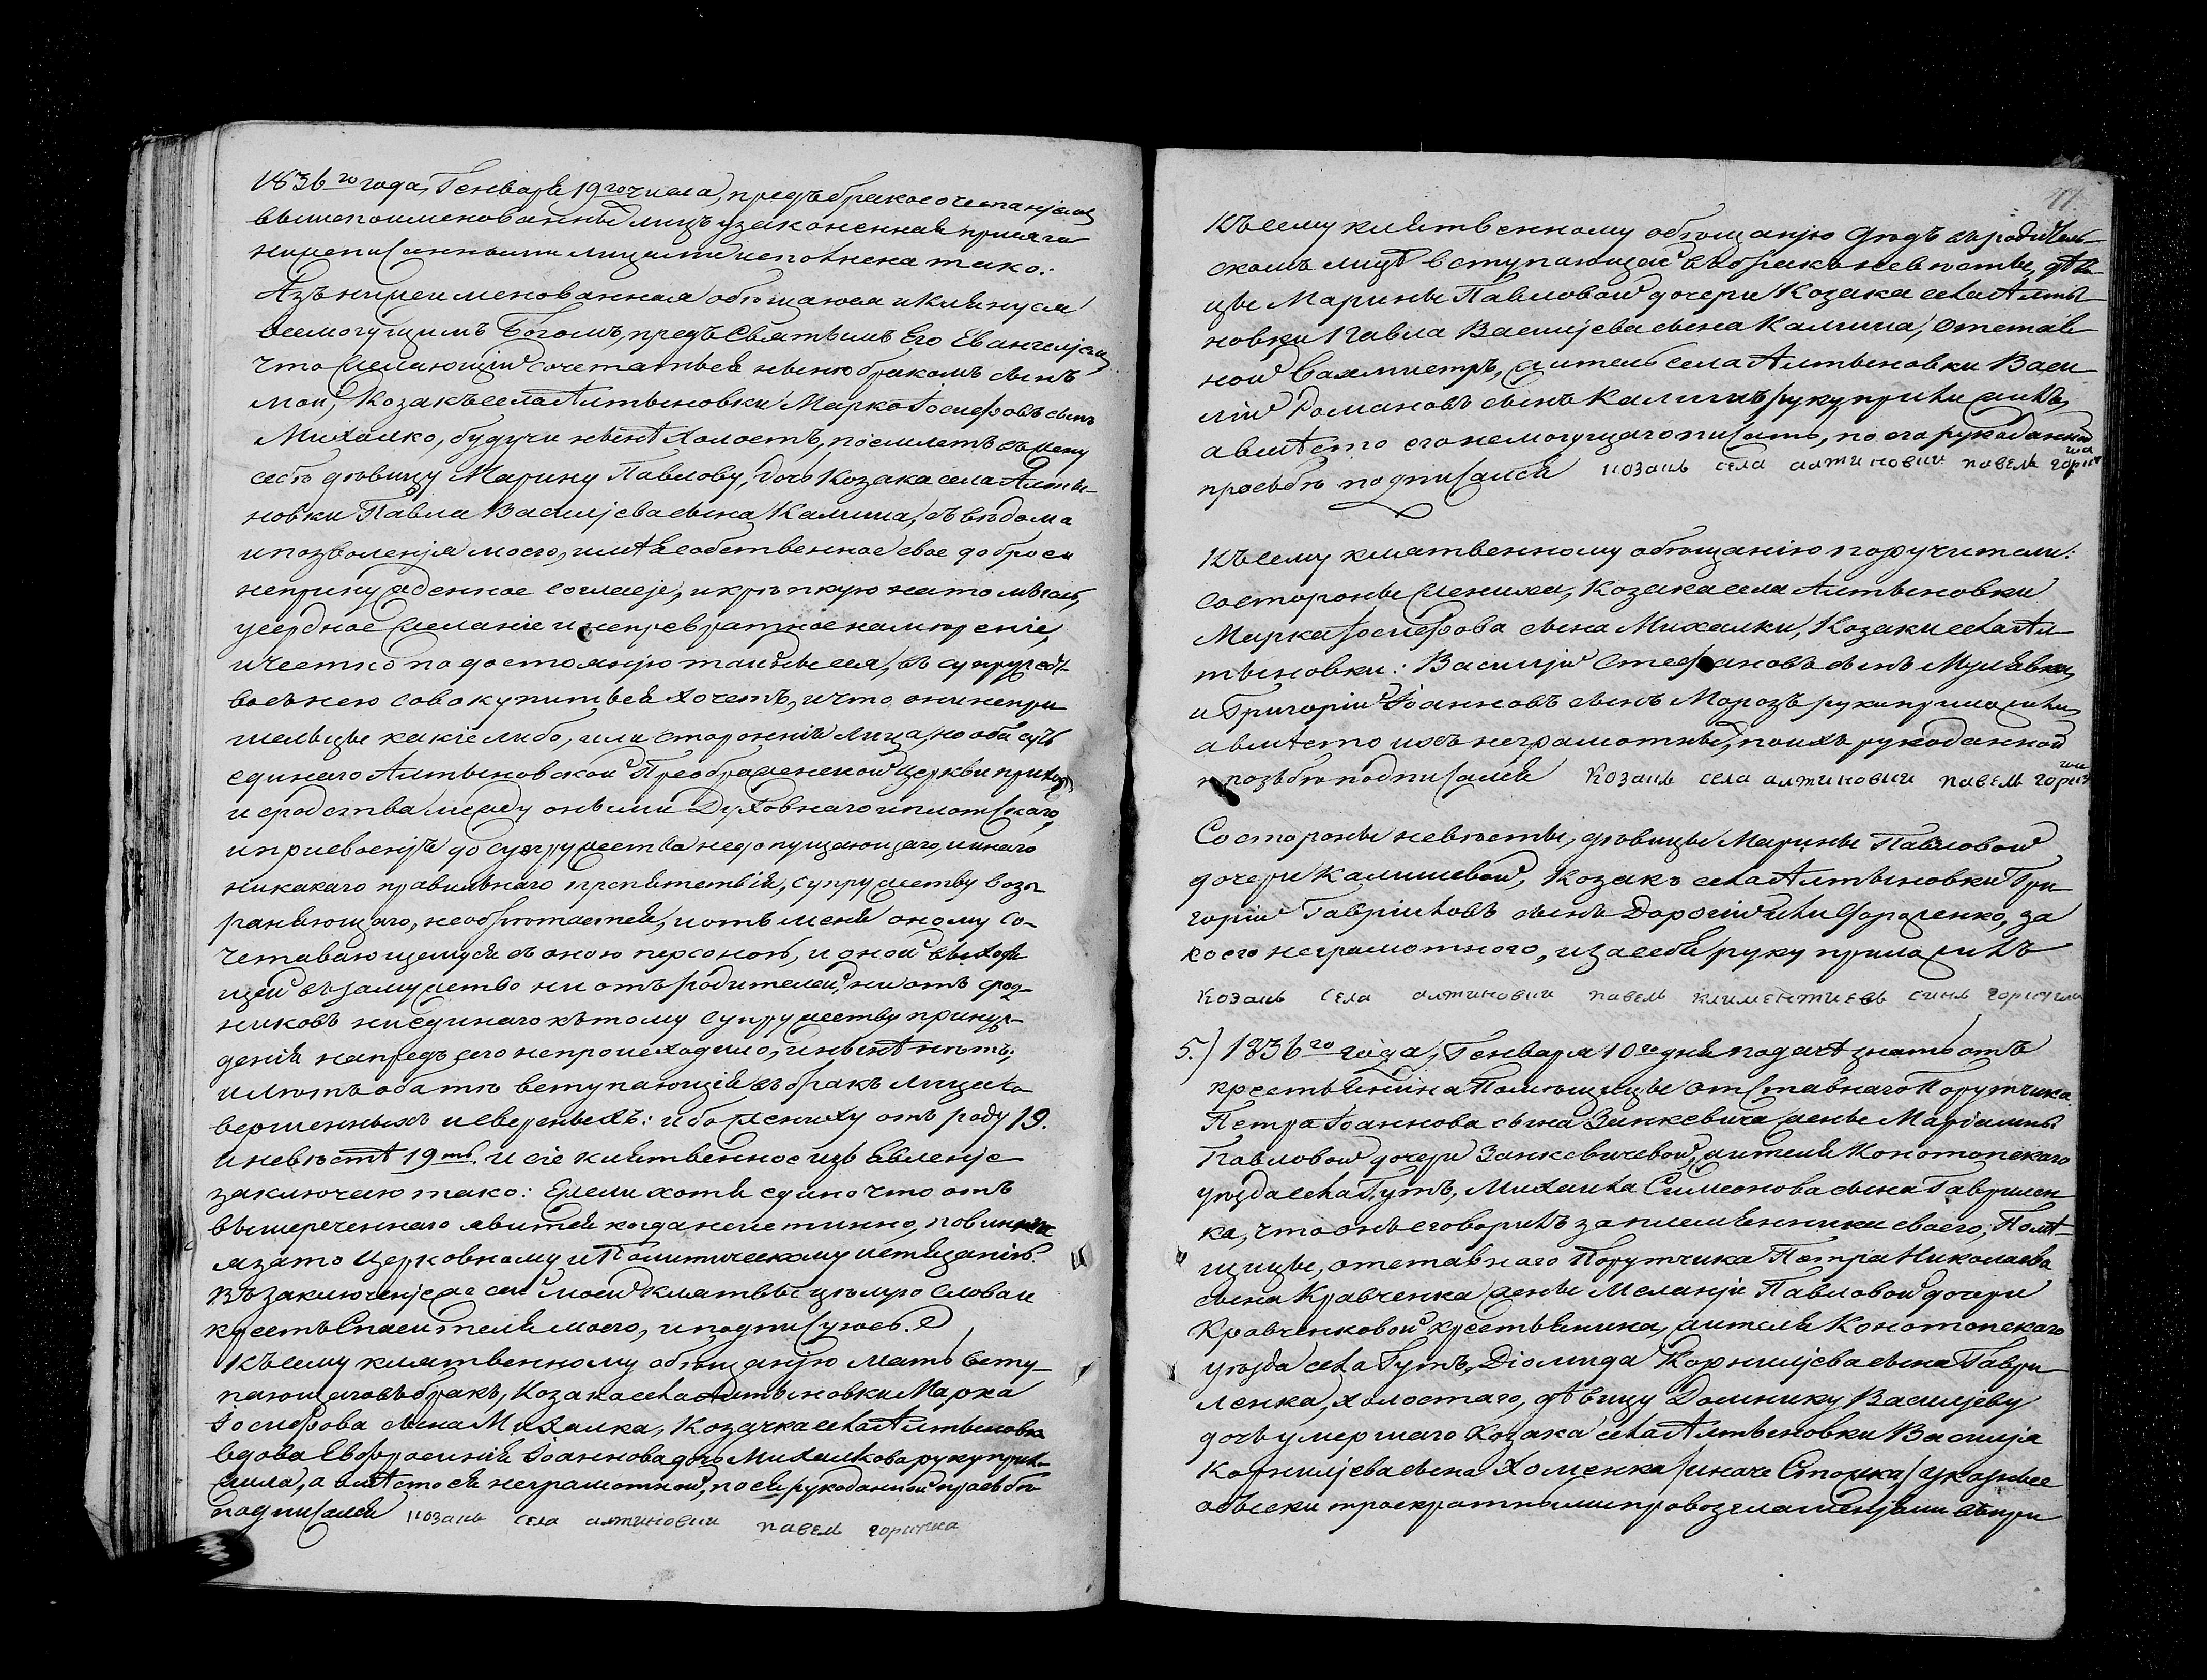 1836го года, Генваря 19го числа, предъ бракосочетанiемъ
вышепоименованныхъ лицъ узаконенная присяга
нижеписанными лицами исполнена тако:
Азъ нижеименованная обѣщаюся и клянуся
всемогущимъ Богомъ, предъ Святымъ Его Евангелiемъ,
что желающiй сочетаться нынѣ бракомъ сынъ
мой, Козакъ села Алтыновки Марко Iосифовъ сынъ
Михалко, будучи нынѣ холостъ, поемлетъ въ жену
себѣ дѣвицу Марину Павлову, дочь Козака села Алты-
новки Павла Василiева сына Калиша, съ вѣдома
и позволенiя моего, имѣя собственное свое доброе и
непринужденное согласiе, и крѣпкую на то мысль,
усердное желанiе и непревратное намѣренiе,
и честно по достоянiю тайны сея, въ супружест-
во съ нею совокупиться хочетъ, и что они непри
шельцы какiе либо, или стороннiя лица, но оба суть
единаго Алтыновской Преображенской церкви прихода
и сродства между оными Духовнаго и плотскаго,
и присвоенiя до супружества недопущающаго, и инаго
никакаго правильнаго препятствiя, супружеству возб-
раняющаго, необрѣтается, и отъ меня оному со-
четавающемуся съ оною персоною, и оной выходя
щей въ замужество ни отъ родителей, ни отъ срод-
никовъ ни единаго къ тому супружеству принуж-
денiя напредъ сего непроисходило, и нынѣ нѣтъ;
и лѣтъ оба тѣ вступающiя въ бракъ лица со
вершенныхъ и сверсныхъ: ибо жениху отъ роду 19.
и невѣстѣ 19ть. И сiе клятвенное изъявленiе
заключаю тако: Ежели хотя едино что отъ
вышереченнаго явится когда неистинно, повинна
я за то Церковному и Политическому истязанiю.
Въ заключенiе же сей моей клятвы цѣлую Слова и
крестъ Спасителя моего, и подписуюсь.
Къ сему клятвенному обѣщанiю мать всту-
пающаго въ бракъ, Козака села Алтыновки Марка
Iосифова сына Михалка, Козачка села Алтыновки
вдова Евфросинiя Iоаннова дочь Михалкова руку прило-
жила, а вмѣсто ея неграмотной, по ея рукоданной прозьбѣ
подписался козакъ села алтиновки павелъ горкуша
Къ сему клятвенному обѣщанiю Дядъ въ родитель-
скомъ лицѣ вступающей въ бракъ невѣсты, дѣви
цы Марины Павловой дочери Козака села Алты-
новки Павла Василiева сына Калиша, Отстав
ной Вахмистръ, житель села Алтыновки Васи
лiй Романовъ сынъ Калишъ руку приложилъ,
а вмѣсто его немогущаго писать, по его рукоданной
прозьбѣ подписался козакъ села алтиновки павелъ горкуша
Къ сему клятвенному обѣщанiю поручители:
Со стороны жениха, Козака села Алтыновки
Марка Iосифова сына Михалки, Козаки села Ал
тыновки: Василiй Стефановъ сынъ Мулявка,
и Григорiй Iоанновъ сынъ Морозъ руки приложили,
а вмѣсто ихъ неграмотныхъ, по ихъ рукоданной
прозьбѣ подписался козакъ села алтиновки павелъ горкуша
Со стороны невѣсты, дѣвицы Марины Павловой
дочери Калишевой, Козакъ села Алтыновки Гри
горiй Гаврiиловъ сынъ за
коего неграмотного, и за себя руку приложилъ
козакъ села алтиновки павелъ климентиевъ синъ горкуша
5.) 1836го года, Генваря 10го дня подачѣ знать отъ
крестьянина Помѣщицы отставнаго Порутчика
Петра Iоаннова сына Зинкевича жены Марiамны
Павловой дочери Занкевичевой, жителя Конотопскаго
уѣзда села Гутъ, Михаила Симеонова сына Гаврилен
ка, что онъ сговорилъ за племянника своего, Помѣ-
щицы, отставнаго Порутчика Петра Николаева
сына Кравченка жены Меланiи Павловой дочери
Кравченковой крестьянина, жителя Конотопскаго
уѣзда села Гутъ, Дiомида Корнилiева сына Гаври
ленка, холостаго, дѣвицу Домникiу Василiеву
дочь умершаго Козака села Алтыновки Василiя
Корнилiева сына Хоменка /иначе Стоика/ укотрые
обыски троекратными провозглашенiями въ при